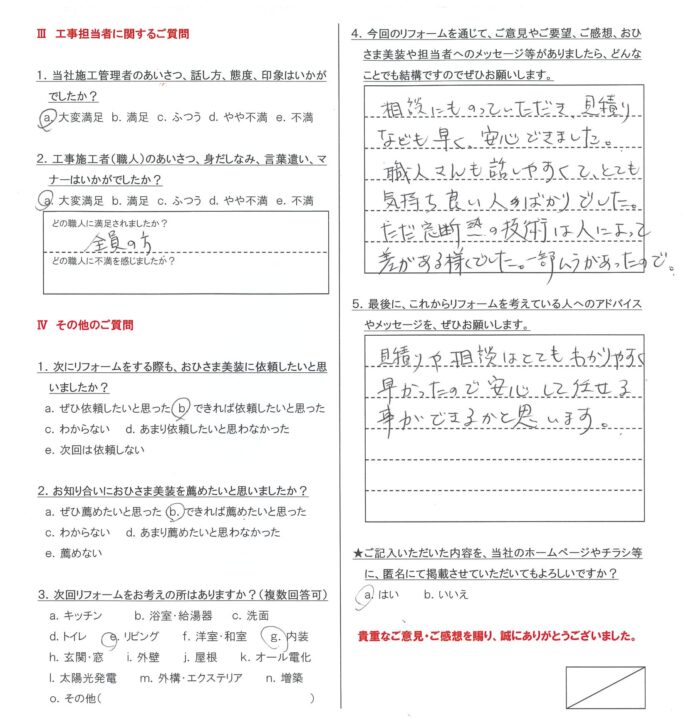 Ⅲ 工事担当者に関するご質問
1. 当社施工管理者のあいさつ、話し方、態度、印象はいかが
でしたか？
a. 大変満足 b. 満足 c. ふつう d. やや不満 e. 不満
2. 工事施工者（職人）のあいさつ、身だしなみ、言葉遣い、マ
ナーはいかがでしたか？
a. 大変満足 b. 満足 c. ふつう d. やや不満 e. 不満
どの職人に満足されましたか？
全員の方
どの職人に不満を感じましたか？
Ⅳ その他のご質問
1. 次にリフォームをする際も、おひさま美装に依頼したいと思
いましたか？
a. ぜひ依頼したいと思った b. できれば依頼したいと思った
c. わからない d. あまり依頼したいと思わなかった
e. 次回は依頼しない
2. お知り合いにおひさま美装を薦めたいと思いましたか？
a. ぜひ薦めたいと思った b. できれば薦めたいと思った
c. わからない d. あまり薦めたいと思わなかった
e. 薦めない
3. 次回リフォームをお考えの所はありますか？（複数回答可）
a. キッチン b. 浴室・給湯器 c. 洗面
d. トイレ e. リビング f. 洋室・和室 g. 内装
h. 玄関・窓 i. 外壁 j. 屋根 k. オール電化
l. 太陽光発電 m. 外構・エクステリア n. 増築
o. その他（ ）
4. 今回のリフォームを通じて、ご意見やご要望、ご感想、おひ
さま美装や担当者へのメッセージ等がありましたら、どんな
ことでも結構ですのでぜひお願いします。
相談にものっていただき、見積り
なども早く、安心できました。
職人さんも話しやすくて、とても
気持ち良い人のばかりでした。
ただ窓断熱の技術は人によって
差がある様でした。一部ムラがあったので。
5. 最後に、これからリフォームを考えている人へのアドバイス
やメッセージを、ぜひお願いします。
見積りや相談はとてもわかりやすく
早かったので安心して任せる
事ができるかと思います。
★ご記入いただいた内容を、当社のホームページやチラシ等
に、匿名にて掲載させていただいてもよろしいですか？
a. はい b. いいえ
貴重なご意見・ご感想を賜り、誠にありがとうございました。